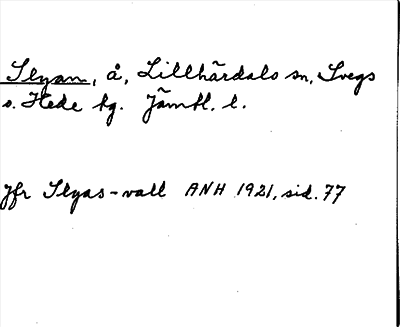 Slyan, å, Lillhärdals sn, Svegs
o. Hede tg. Jämtl. l.
Jfr Slyas-vall ANH 1921, sid. 77